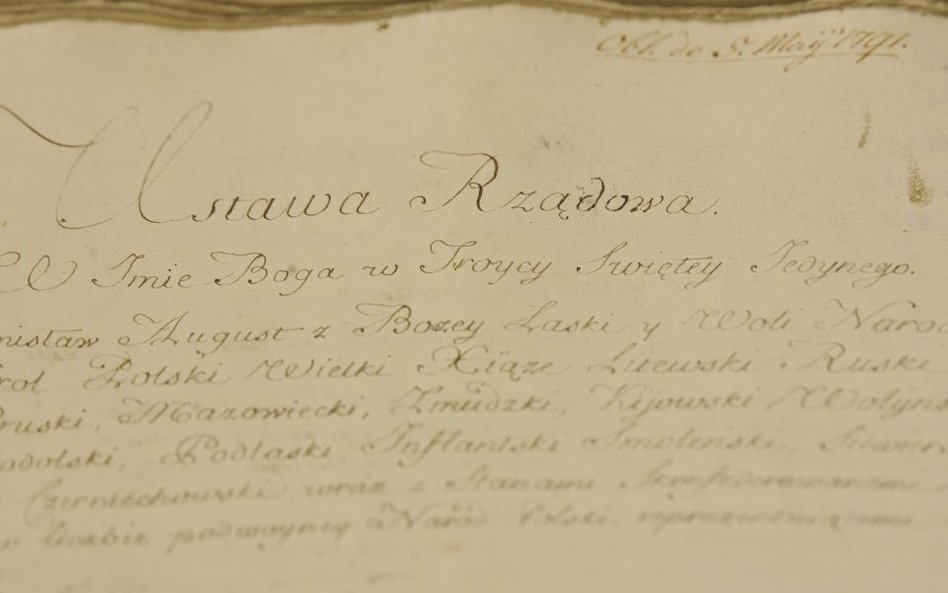 Obl. de 5. Maÿ 1791.
Ustawa Rządowa.
W Imie Boga w Troycy Swiętey Jedynego.
nisław August z Bozey Łaski y Woli Narod
rol Polski Wielki Xiąze Litewski Ruski
ruski, Mazowiecki, Zmudzki, Kijowski Wołyńs
odolski, Podlaski, Inflantski Smolenski, Siewier
Czerniechowski wraz z Stanami Skonfederowanemi
w liczbie podwoyney Naród Polski reprezentuiącemi